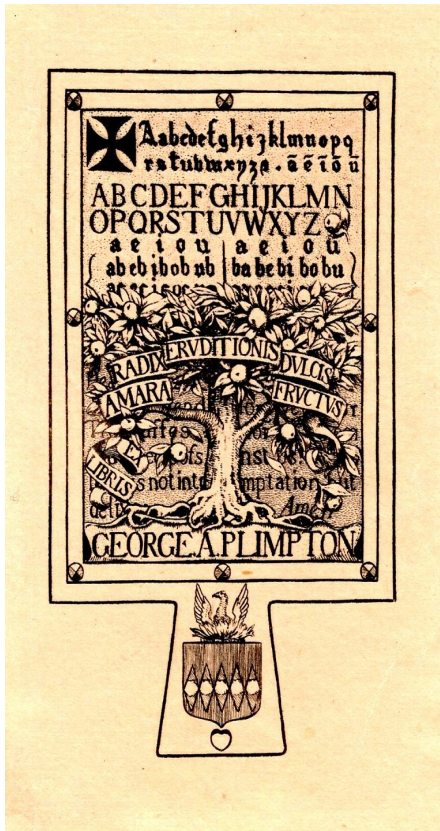 Aabcdefghijklmnopq
rstuvwxyz ā ē ī ō ū
ABCDEFGHIJKLMN
OPQRSTUVWXYZ
a e i o u a e i o u
ab eb ib ob ub ba be bi bo bu
ERVDITIONIS
RADIX DVLCIS
AMARA FRVCTVS
EX
LIBRIS
s not into mptation but
Amen
GEORGE.A.PLIMPTON